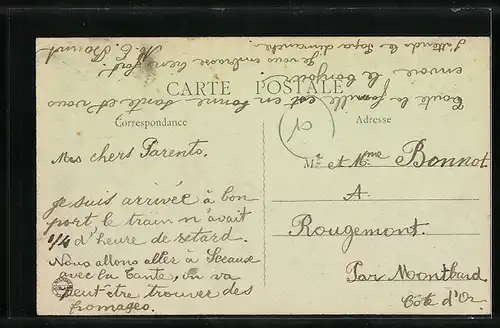 CARTE POSTALE
Correspondance
Adresse
Mes chers Parents,
je suis arrivée à bon
port, le train n'avait
d'heure de retard.
Nous allons aller à Sceaux
avec la Tante, on va
peut-être trouver des
fromages.
Toute la famille est en bonne santé et vous
envoie le bonjour.
Je vous embrasse bien fort.
J'attends le Papa dimanche.
M. Bonnot
Mr et Mme Bonnot
A
Rougemont.
Par Montbard
Côte d'Or